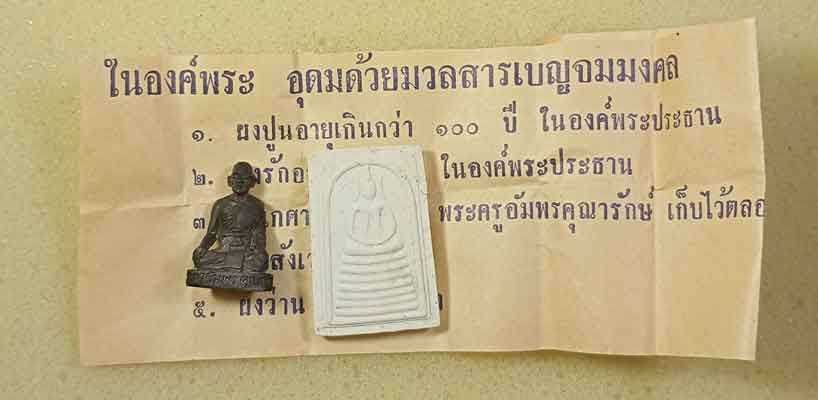 ในองค์พระ อุดมด้วยมวลสารเบญจมมงคล
๑. ผงปูนอายุเกินกว่า ๑๐๐ ปี ในองค์พระประธาน
๒. ในองค์พระประธาน
๓ พระครูอัมพรคุณารักษ์ เก็บไว้ตลอ
๕. ผงว่าน